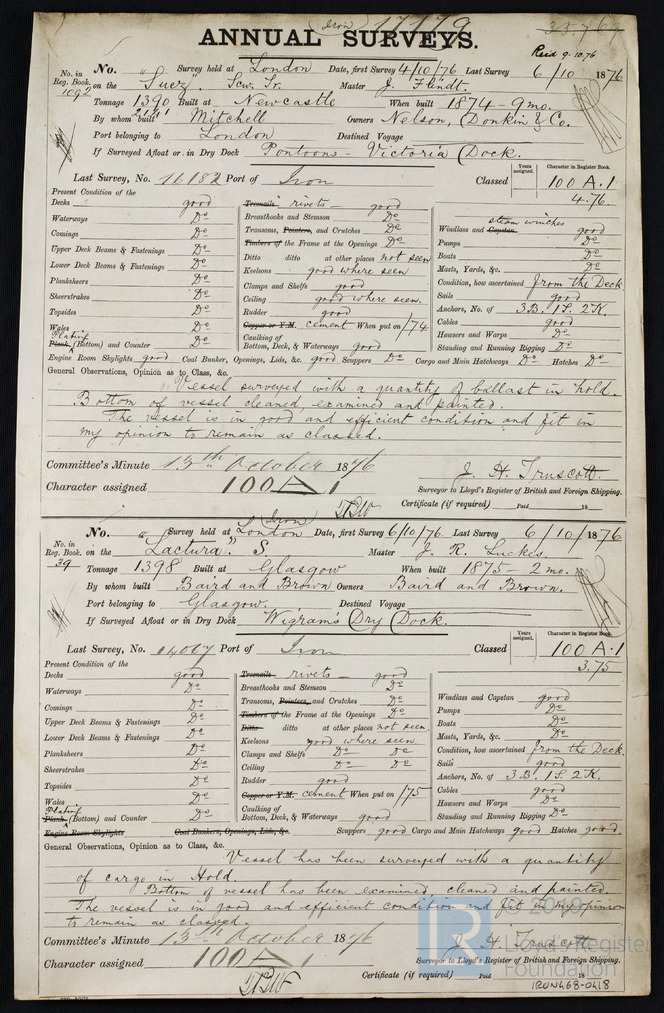 (Iron) 17179 35768
ANNUAL SURVEYS.
Recd 9.10.76
No. in Reg. Book. 1092
No. Survey held at London Date, first Survey 4/10/76 Last Survey 6/10 1876
on the "Suez". Scw. Sr. Master J. Flindt.
Tonnage 1390 Built at Newcastle When built 1874 - 9 mo.
By whom built Mitchell Owners Nelson, Donkin & Co.
Port belonging to London Destined Voyage
If Surveyed Afloat or in Dry Dock Pontoon - Victoria Dock.
Last Survey, No. 16182 Port of Iron Classed Years assigned. Character in Register Book. 100 A.1
4.76.
Present Condition of the
Decks good
Waterways Do
Comings Do
Upper Deck Beams & Fastenings Do
Lower Deck Beams & Fastenings Do
Planksheers Do
Sheerstrakes Do
Topsides Do
Wales Do
Plating
Plank (Bottom) and Counter Do
Treenails rivets - good
Breasthooks and Stemson Do
Transoms, Pointers, and Crutches Do
Timbers of the Frame at the Openings Do
Ditto ditto at other places not seen
Keelsons good where seen
Clamps and Shelfs good
Ceiling good where seen.
Rudder good
Copper or Y.M. cement When put on /74
Caulking of
Bottom, Deck, & Waterways good
steam winches
Windlass and Capstan good
Pumps Do
Boats Do
Masts, Yards, &c. Do
Condition, how ascertained from the Deck
Sails good
Anchors, No. of 3B. 1S. 2K.
Cables good
Hawsers and Warps Do
Standing and Running Rigging Do
Engine Room Skylights good Coal Bunker, Openings, Lids, &c. good Scuppers Do Cargo and Main Hatchways Do Hatches Do
General Observations, Opinion as to Class, &c.
Vessel surveyed with a quantity of ballast in hold.
Bottom of vessel cleaned, examined and painted.
The vessel is in good and efficient condition and fit in
my opinion to remain as classed.
Committee's Minute 13th October 1876
Character assigned 100 A 1
J. H. Truscott.
Surveyor to Lloyd's Register of British and Foreign Shipping.
Certificate (if required) Paid 18
(Iron)
No. in Reg. Book. 39
No. Survey held at London Date, first Survey 6/10/76. Last Survey 6/10/1876
on the "Lactura." S. Master J. R. Luckes.
Tonnage 1398 Built at Glasgow When built 1875 - 2 mo.
By whom built Baird and Brown Owners Baird and Brown.
Port belonging to Glasgow. Destined Voyage
If Surveyed Afloat or in Dry Dock Wigram's Dry Dock.
Last Survey, No. 14067 Port of Iron Classed Years assigned. Character in Register Book. 100 A.1
3.75
Present Condition of the
Decks good
Waterways Do
Comings Do
Upper Deck Beams & Fastenings Do
Lower Deck Beams & Fastenings Do
Planksheers Do
Sheerstrakes Do
Topsides Do
Wales Do
Plating
Plank (Bottom) and Counter Do
Treenails rivets - good
Breasthooks and Stemson Do
Transoms, Pointers, and Crutches Do
Timbers of the Frame at the Openings Do
Ditto ditto at other places not seen.
Keelsons good where seen
Clamps and Shelfs Do Do
Ceiling Do Do
Rudder good
Copper or Y.M. cement When put on /75
Caulking of
Bottom, Deck, & Waterways good
Windlass and Capstan good
Pumps Do
Boats Do
Masts, Yards, &c. Do
Condition, how ascertained from the Deck.
Sails good
Anchors, No. of 3B. 1S. 2K.
Cables good
Hawsers and Warps Do
Standing and Running Rigging Do
Engine Room Skylights Coal Bunkers, Openings, Lids, &c. Scuppers good Cargo and Main Hatchways good Hatches good.
General Observations, Opinion as to Class, &c.
Vessel has been surveyed with a quantity
of cargo in Hold.
Bottom of vessel has been examined, cleaned and painted.
The vessel is in good and efficient condition and fit in my opinion
to remain as classed.
Committee's Minute 13th October 1876
Character assigned 100 A 1
J. H. Truscott
Surveyor to Lloyd's Register of British and Foreign Shipping.
Certificate (if required) Paid 18
© 2019
LR Lloyd's Register
Foundation
IRON468-0418